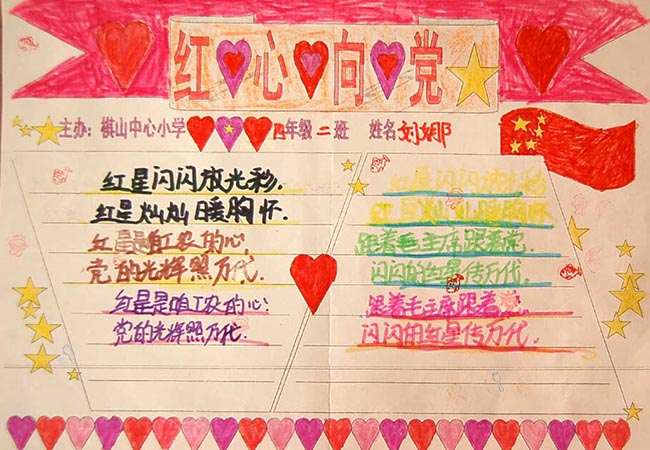 红心向党
主办：棋山中心小学 四年级二班 姓名刘娜
红星闪闪放光彩.
红星灿灿暖胸怀.
红星是咱工农的心,
党的光辉照万代.
红星是咱工农的心:
党的光辉照万代.
红星闪闪放光彩
红星灿灿暖胸怀
跟着毛主席跟着党.
闪闪的红星传万代.
跟着毛主席跟着
闪闪的红星传万代.